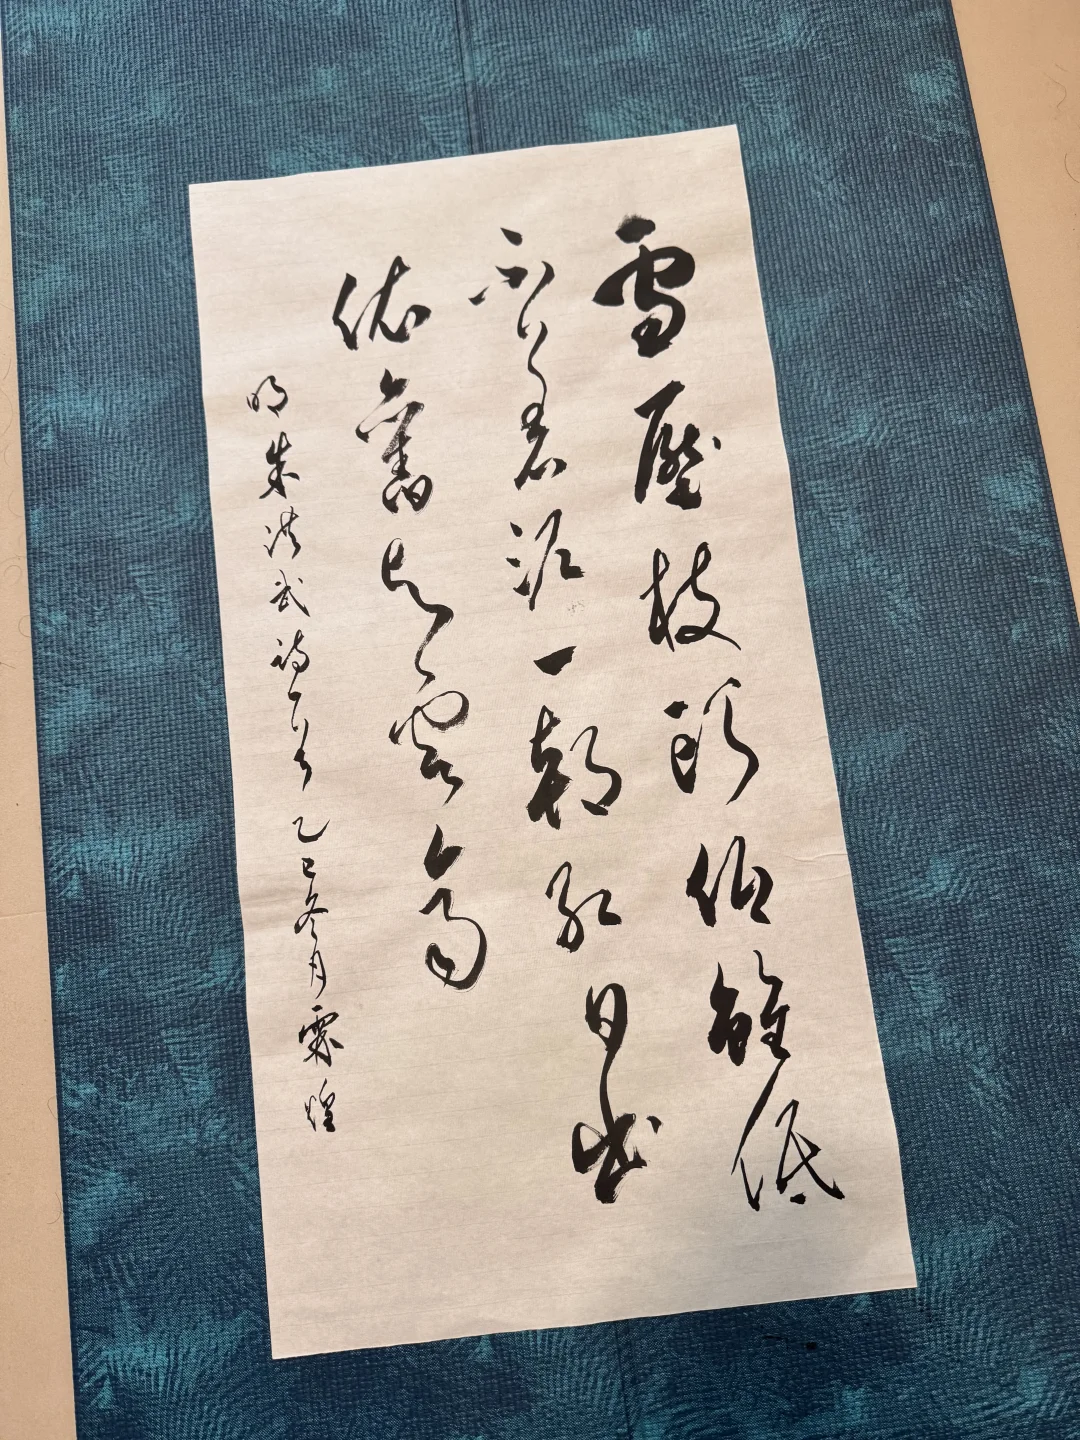 雪壓枝頭低雖低
不著泥一朝紅日出
依舊與雲齊
明朱洪武詩一首 乙巳冬月霖煌